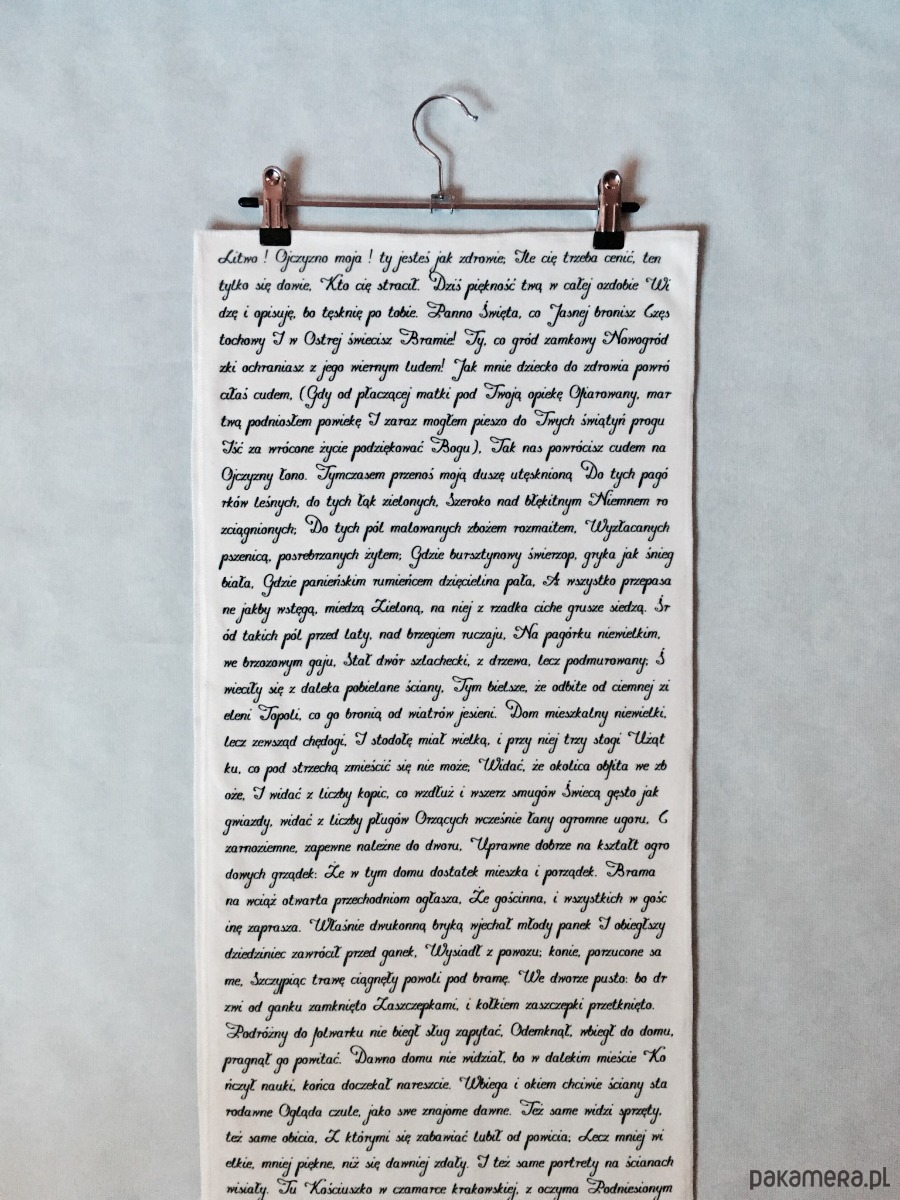 Litwo ! Ojczyzno moja ! ty jesteś jak zdrowie; Ile cię trzeba cenić, ten
tylko się dowie, Kto cię stracił. Dziś piękność twą w całej ozdobie Wi
dzę i opisuję, bo tęsknię po tobie. Panno Święta, co Jasnej bronisz Częs
tochowy I w Ostrej świecisz Bramie! Ty, co gród zamkowy Nowogród
zki ochraniasz z jego wiernym ludem! Jak mnie dziecko do zdrowia powró
ciłaś cudem, (Gdy od płaczącej matki pod Twoją opiekę Ofiarowany, mar
twą podniosłem powiekę I zaraz mogłem pieszo do Twych świątyń progu
Iść za wrócone życie podziękować Bogu), Tak nas powrócisz cudem na
Ojczyzny łono. Tymczasem przenoś moją duszę utęsknioną Do tych pagó
rków leśnych, do tych łąk zielonych, Szeroko nad błękitnym Niemnem ro
zciągnionych; Do tych pól malowanych zbożem rozmaitem, Wyzłacanych
pszenicą, posrebrzanych żytem; Gdzie bursztynowy świerzop, gryka jak śnieg
biała, Gdzie panieńskim rumieńcem dzięcielina pała, A wszystko przepasa
ne jakby wstęgą, miedzą Zieloną, na niej z rzadka ciche grusze siedzą. Śr
ód takich pól przed laty, nad brzegiem ruczaju, Na pagórku niewielkim,
we brzozowym gaju, Stał dwór szlachecki, z drzewa, lecz podmurowany; Ś
wieciły się z daleka pobielane ściany, Tym bielsze, że odbite od ciemnej zi
eleni Topoli, co go bronią od wiatrów jesieni. Dom mieszkalny niewielki,
lecz zewsząd chędogi, I stodołę miał wielką, i przy niej trzy stogi Użąt
ku, co pod strzechą zmieścić się nie może; Widać, że okolica obfita we zb
oże, I widać z liczby kopic, co wzdłuż i wszerz smugów Świecą gęsto jak
gwiazdy, widać z liczby pługów Orzących wcześnie łany ogromne ugoru, C
zarnoziemne, zapewne należne do dworu, Uprawne dobrze na kształt ogro
dowych grządek: Że w tym domu dostatek mieszka i porządek. Brama
na wciąż otwarta przechodniom ogłasza, Że gościnna, i wszystkich w gośc
inę zaprasza. Właśnie dwukonną bryką wjechał młody panek I obiegłszy
dziedziniec zawrócił przed ganek, Wysiadł z powozu; konie, porzucone sa
me, Szczypiąc trawę ciągnęły powoli pod bramę. We dworze pusto: bo dr
zwi od ganku zamknięto Zaszczepkami, i kołkiem zaszczepki przetknięto.
Podróżny do folwarku nie biegł sług zapytać, Odemknął, wbiegł do domu,
pragnął go powitać. Dawno domu nie widział, bo w dalekim mieście Ko
ńczył nauki, końca doczekał nareszcie. Wbiega i okiem chciwie ściany sta
rodawne Ogląda czule, jako swe znajome dawne. Też same widzi sprzęty,
też same obicia, Z którymi się zabawiać lubił od powicia; Lecz mniej wi
elkie, mniej piękne, niż się dawniej zdały. I też same portrety na ścianach
wisiały. Tu Kościuszko w czamarce krakowskiej, z oczyma Podniesionym
pakamera.pl